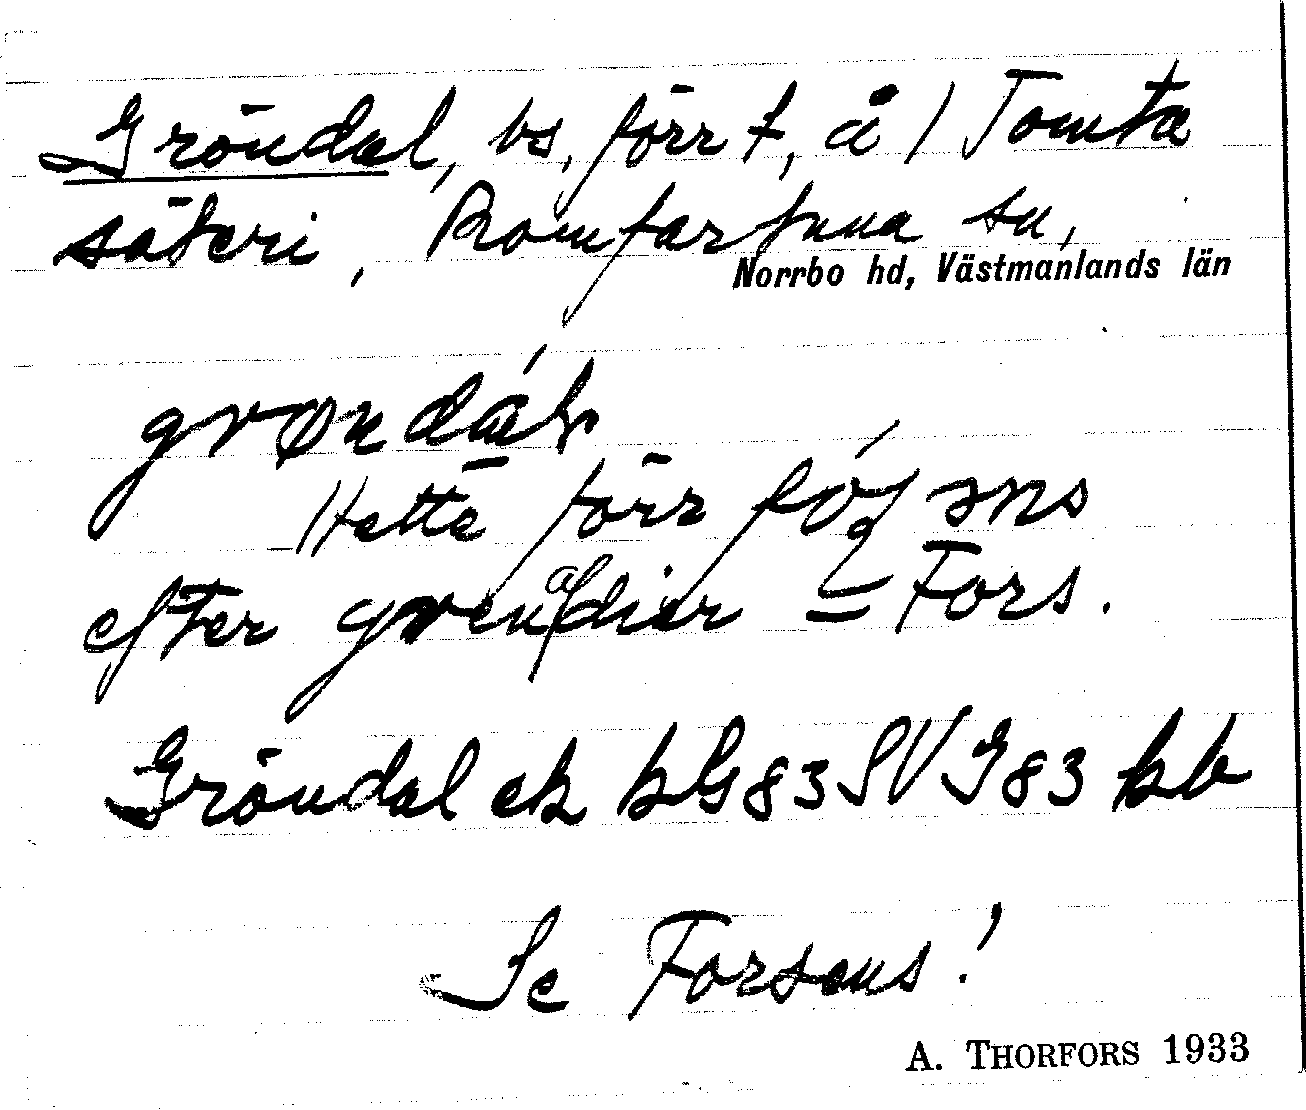 Gröndal, bs, förr t, å 1 Tomta
säteri, Romfartuna sn,
Norrbo hd, Västmanlands län
grøndál
Hette förr
efter grenadier = Fors.
Gröndal ek kG83SVJ83 kb
Se Forsens!
A. THORFORS 1933